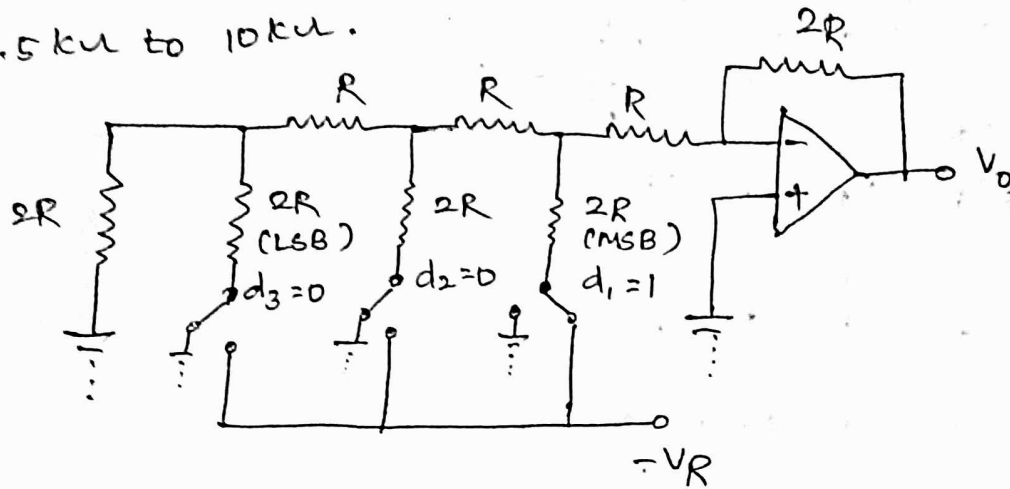 .5 kΩ to 10 kΩ.
2R
R
R
R
-
+
V0
2R
2R
(LSB)
2R
2R
(MSB)
d3=0
d2=0
d1=1
-VR